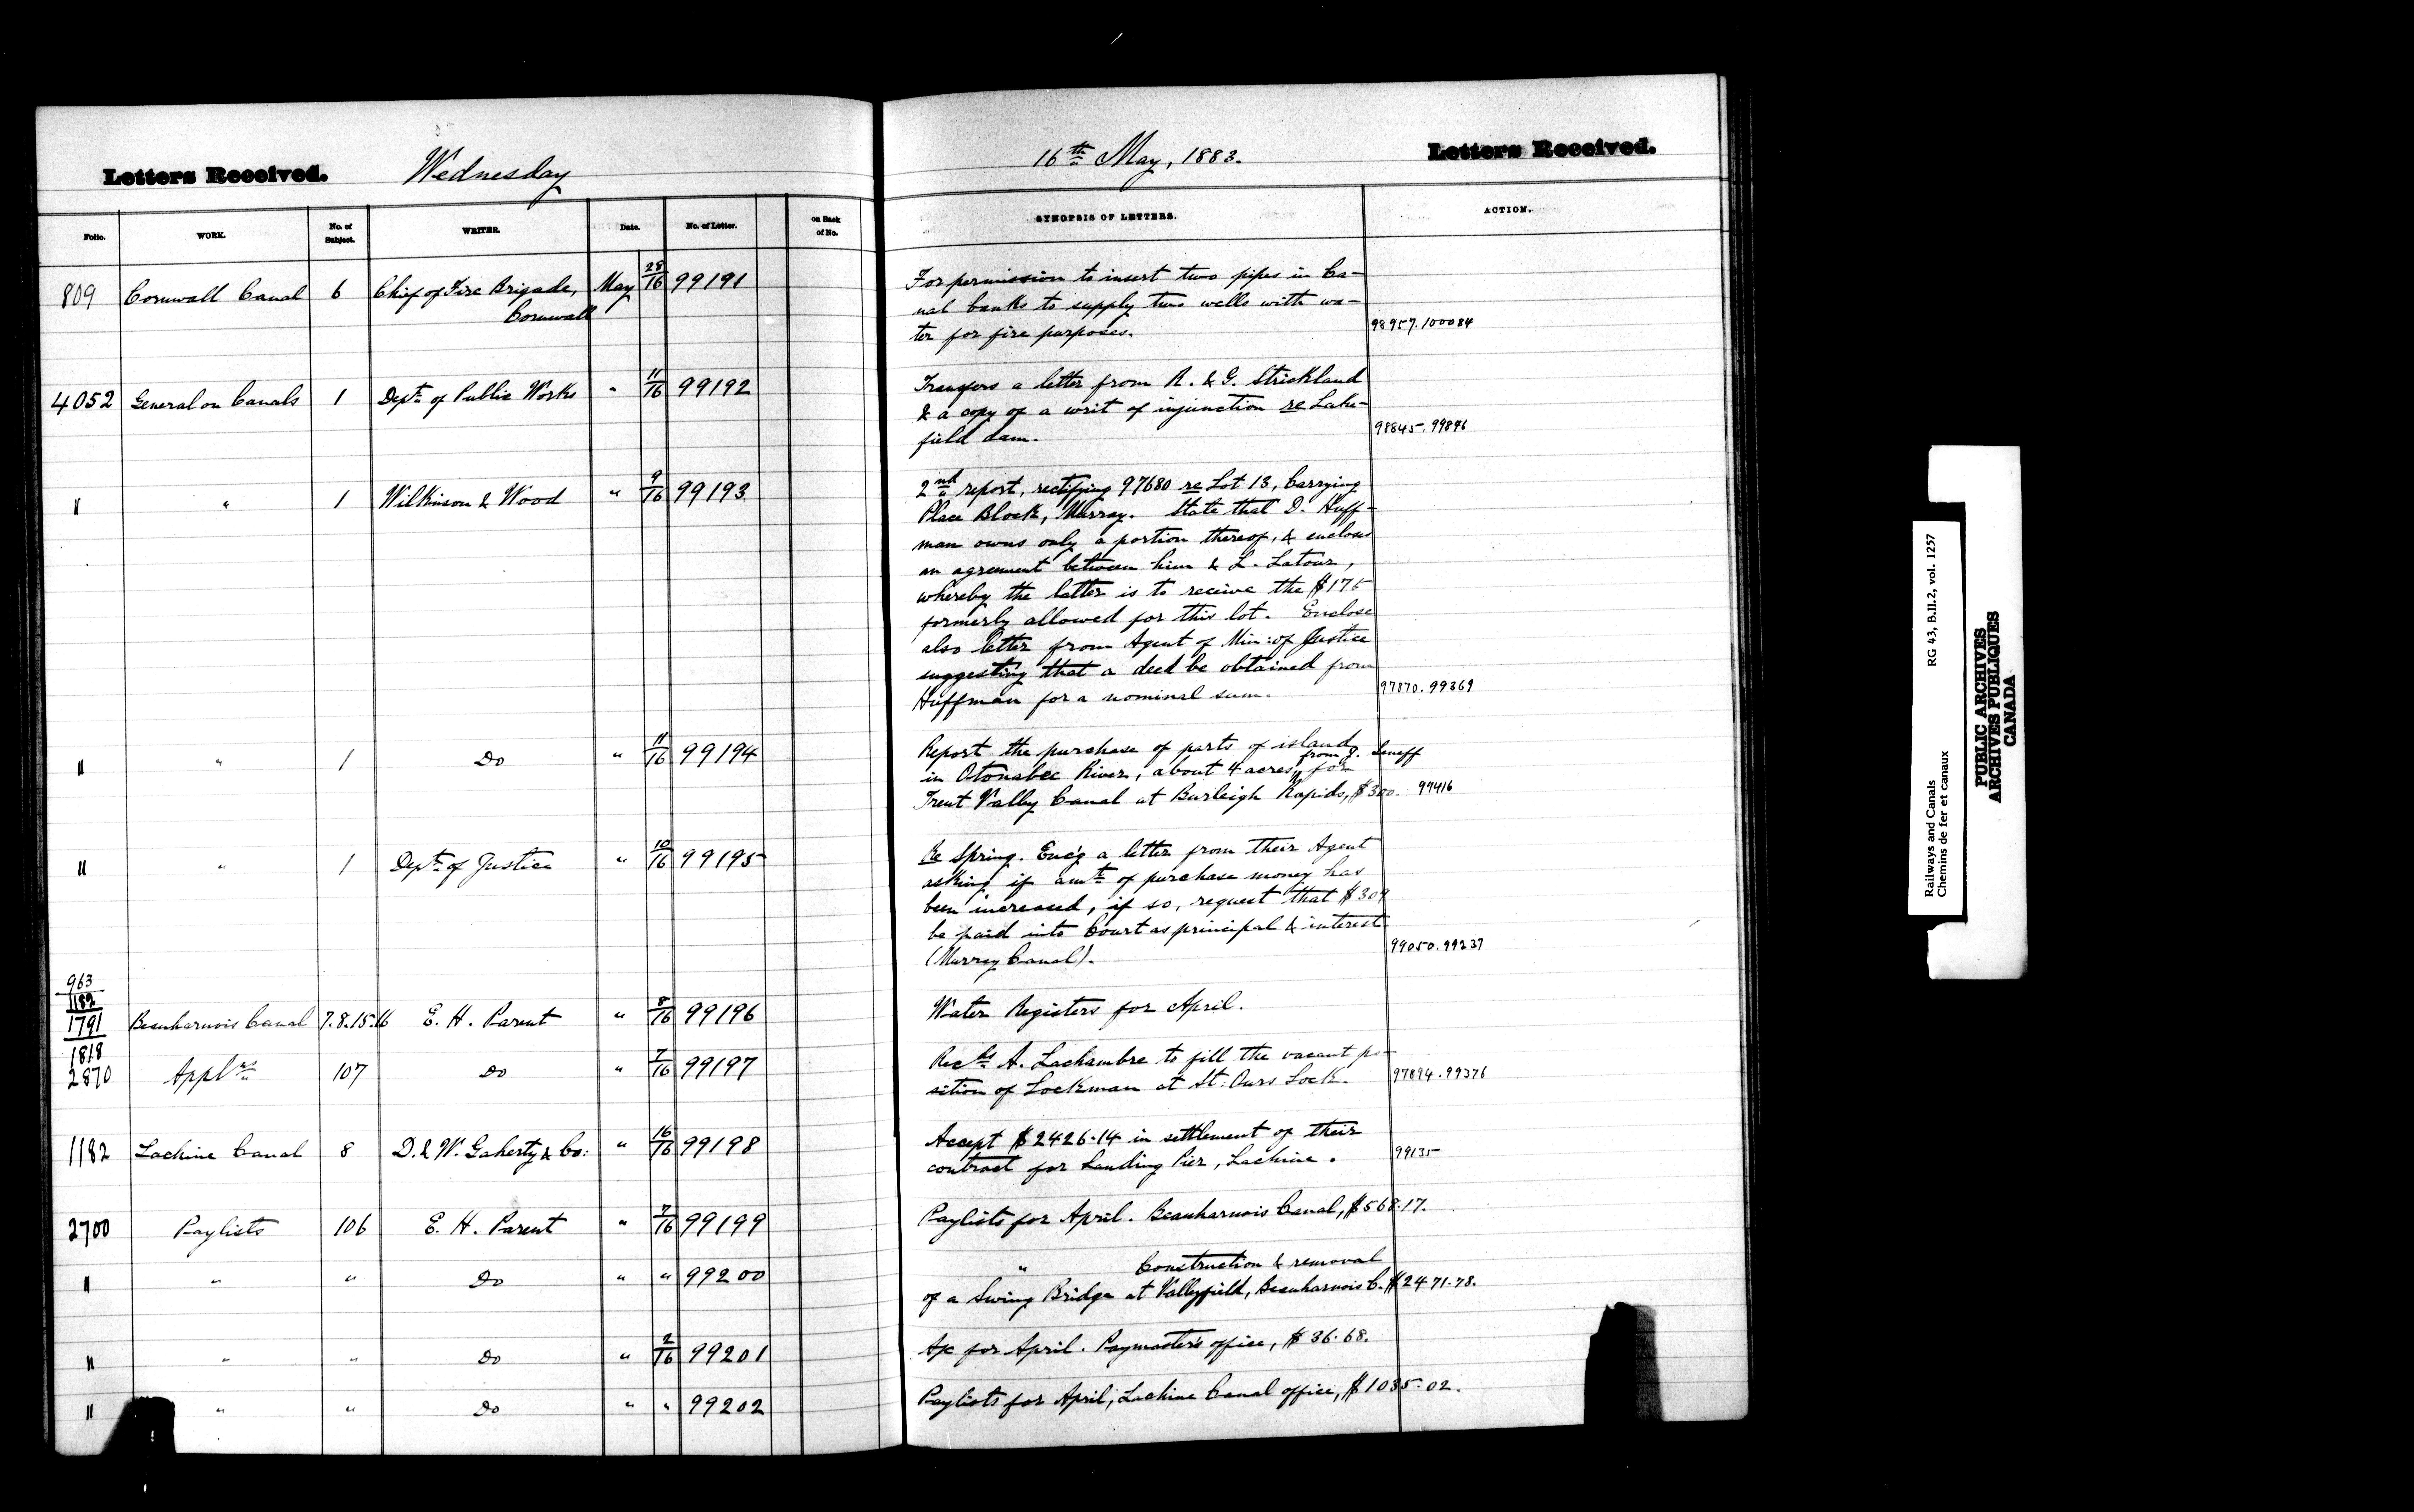 Letters Received. Wednesday 16th May, 1883. Letters Received.
Folio. WORK. No. of Subject. WRITER. Date. No. of Letter. on Back of No. SYNOPSIS OF LETTERS. ACTION.
809 Cornwall Canal 6 Chief of Fire Brigade, May 28/16 99191 For permission to insert two pipes in Ca-
Cornwall nal banks to supply two wells with wa-
ter for fire purposes. 98957. 100084
4052 General on Canals 1 Dept. of Public Works " 11/16 99192 Transfers a letter from R. & G. Strickland
& a copy of a writ of injunction re Lake-
field dam. 98845. 99846
" " 1 Wilkinson & Wood " 9/16 99193 2nd report, rectifying 97680 re Lot 13, Carrying
Place Block, Murray. State that D. Huff-
man owns only a portion thereof, & encloses
an agreement between him & L. Latour,
whereby the latter is to receive the $175
formerly allowed for this lot. Enclose
also letter from Agent of Min: of Justice
suggesting that a deed be obtained from
Huffman for a nominal sum. 97870. 99369
" " 1 Do " 11/16 99194 Report the purchase of parts of island
in Otonabee River, about 4 acres, from J. for
Trent Valley Canal at Burleigh Rapids, $300. 97416
" " 1 Dept. of Justice " 10/16 99195 Re Spring. Enc'g a letter from their Agent
asking if amt. of purchase money has
been increased, if so, request that $309
be paid into Court as principal & interest
(Murray Canal). 99050. 99237
963
1182
1791 Beauharnois Canal 7.8.15.16 E. H. Parent " 8/16 99196 Water Registers for April.
1818
2870 Applns 107 Do " 7/16 99197 Recds A. Lachambre to fill the vacant po-
sition of Lockman at St: Ours Lock. 97894. 99376
1182 Lachine Canal 8 D. & W. Gaherty & Co: " 16/16 99198 Accept $2426.14 in settlement of their
contract for Landing Pier, Lachine. 99135
2700 Paylists 106 E. H. Parent " 7/16 99199 Paylists for April. Beauharnois Canal, $568.17.
" " " Do " " 99200 " Construction & removal
of a Swing Bridge at Valleyfield, Beauharnois C. $2471.78.
" " " Do " 2/16 99201 A/c for April. Paymaster's office, $36.68.
" " " Do " " 99202 Paylists for April, Lachine Canal office, $1035.02.
Railways and Canals RG 43, B.II.2, vol. 1257
Chemins de fer et canaux
PUBLIC ARCHIVES
ARCHIVES PUBLIQUES
CANADA